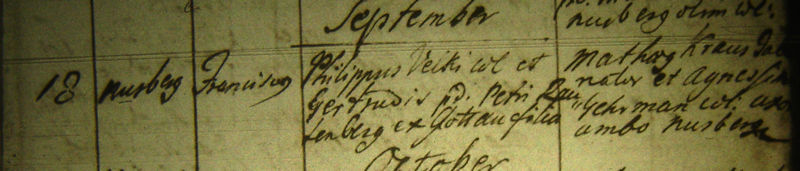 September
nusberg olim col:
18 nusberg Franciscus Philippus Veiki col et
Gertrudis pd. Petri Rau
tenberg ex Gottau filia
Mathaeg Kraus
nator et Agnes
Gehrman col: uxor
ambo nusberg
October